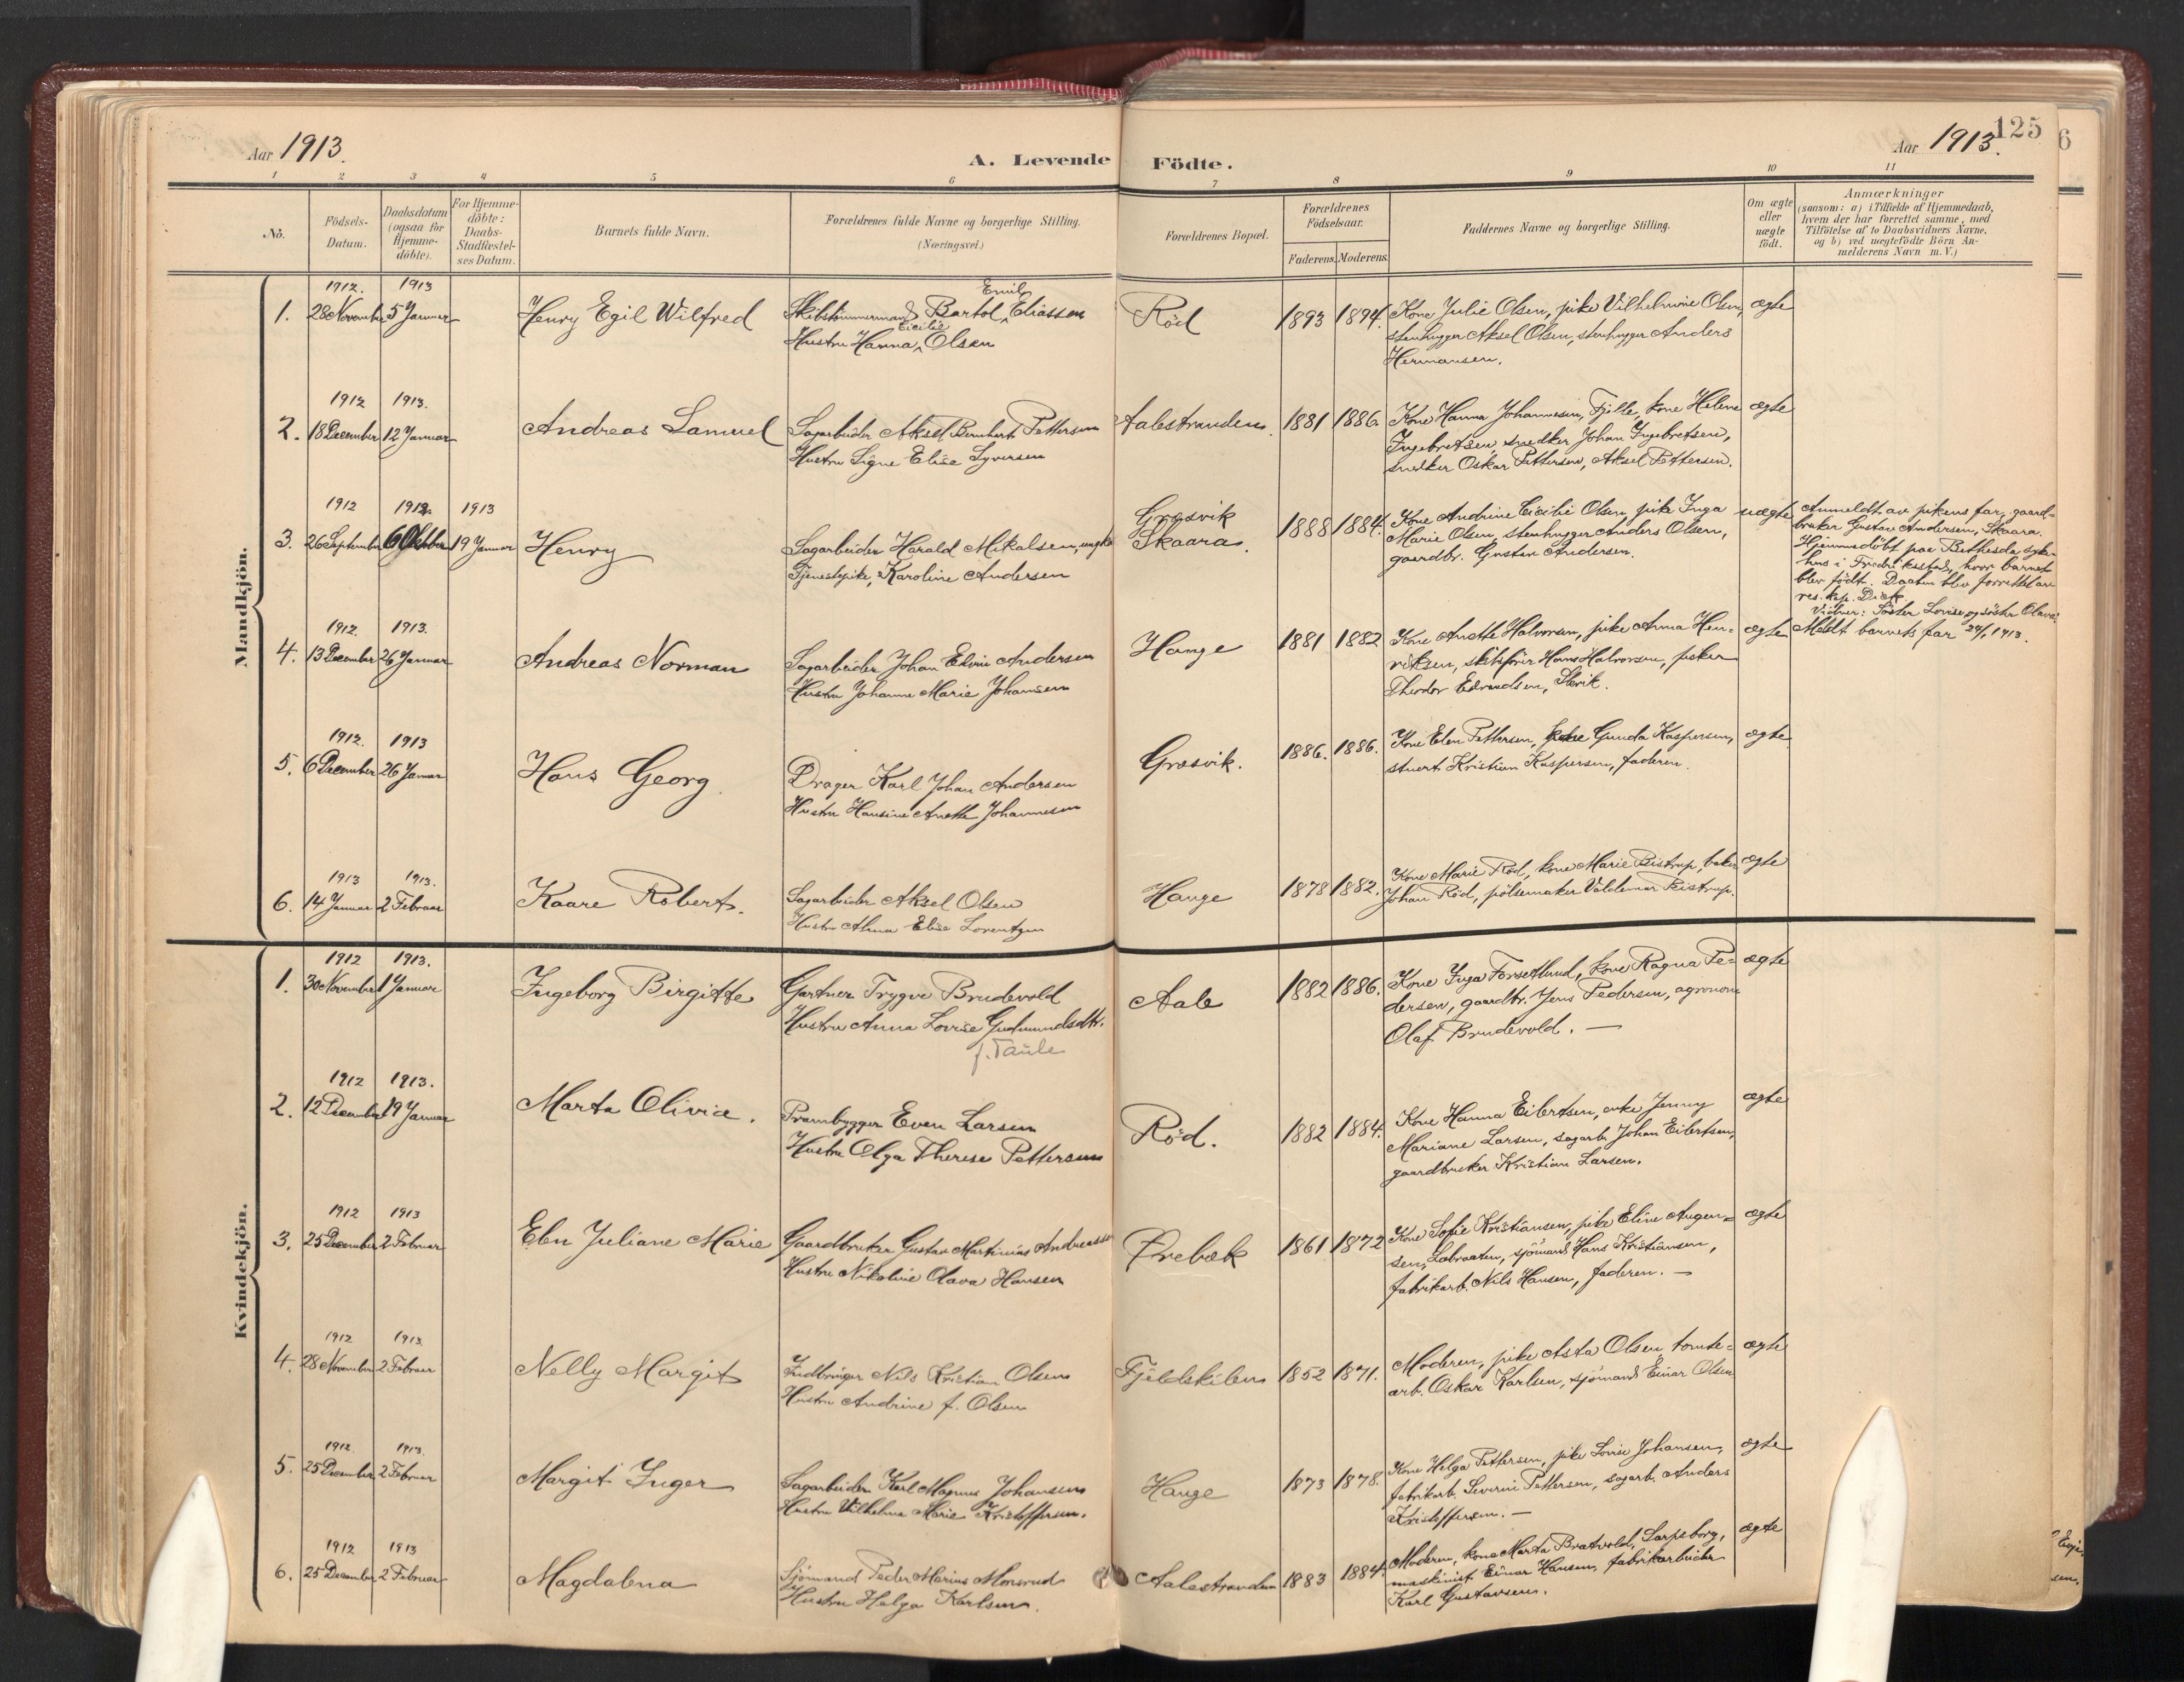 Aar 1913.
A. Levende Födte.
Aar 1913.
125
6
1 2 3 4 5 6 7 8 9 10 11
Nö.
Födsels-Datum.
Daabsdatum (ogsaa for Hjemme-döbte).
For Hjemme-döbte: Daabs-Stadfæstel-ses Datum.
Barnets fulde Navn.
Forældrenes fulde Navne og borgerlige Stilling. (Næringsvei.)
Forældrenes Bopæl.
Forældrenes Födselsaar.
Faderens. Moderens.
Faddernes Navne og borgerlige Stilling.
Om ægte eller uægte födt.
Anmærkninger
(saasom: a) i Tilfælde af Hjemmedaab,
hvem der har forrettet samme, med
Tilföielse af to Daabsvidners Navne,
og b) ved uægtefödte Börn An-
melderens Navn m. V.)
Mandkjön.
1912. 1913
1. 28 November 5 Januar Henry Egil Wilfred
Emil
Skibstömmermand Bartol Eliassen
Cicilie
Hustru Hanna Olsen
Röd 1893 1894.
Kone Julie Olsen, pike Vilhelmine Olsen,
stenhugger Aksel Olsen, stenhugger Anders
Hermansen.
ægte
1912 1913.
2. 18 December 12 Januar Andreas Samuel
Sagarbeider Aksel Bernhert Pettersen
Hustru Signe Elise Syversen
Aalestranden. 1881 1886.
Kone Hanna Johannesen, Fjelle, kone Helene
Ingebretsen, snedker Johan Ingebretsen,
snedker Oskar Pettersen, Aksel Pettersen.
ægte
1912 1912. 1913
3. 26 September 6 Oktober 19 Januar Henry
Sagarbeider Harald Mikalsen, ungka
Tjenestepike, Karoline Andersen
Græsvik
Skaara.
1888 1884.
Kone Andrine Cicilie Olsen, pike Inga
Marie Olsen, stenhugger Anders Olsen,
gaardbr. Gustav Andersen.
uægte
Anmeldt av pikens far, gaard-
bruker Gustav Andersen, Skaara.
Hjemmedöbt paa Bethesda syke-
hus i Fredrikstad, hvor barnet
blev födt. Daaben blev forrettet av
res. kap. Dick.
Vidner: Söster Lovise og söster Olava.
1912. 1913.
4. 13 December 26 Januar Andreas Norman
Sagarbeider Johan Edvin Andersen
Hustru Johanne Marie Johansen
Hange 1881 1882
Kone Anette Halvorsen, pike Anna Hen-
riksen, skibsförer Hans Halvorsen, fisker
Theodor Edvardsen, Slevik.
ægte
Meldt barnets far 24/1 1913.
1912. 1913
5. 6 December 26 Januar Hans Georg.
Drager Karl Johan Andersen
Hustru Hansine Anette Johannesen
Græsvik. 1886. 1886.
Kone Elen Pettersen, kone Gunda Kaspersen,
stuert Kristian Kaspersen, faderen.
ægte
1913 1913.
6. 14 Januar 2 Februar Kaare Robert.
Sagarbeider Aksel Olsen
Hustru Alma Elise Lorentzen
Hauge 1878 1882.
Kone Marie Röd, kone Marie Bistrup, baker
Johan Röd, pölsemaker Valdemar Bistrup.
ægte
Kvindekjön.
1912 1913.
1. 30 November 1 Januar Ingeborg Birgitte
Gartner Trygve Brudevold
Hustru Anna Lovise Gudmundsdtr.
f. Taule
Aale 1882 1886.
Kone Inga Forsetlund, kone Ragna Pe-
dersen, gaardbr. Jens Pedersen, agronom
Olaf Brudevold. —
ægte
1912 1913.
2. 12 December 19 Januar Marta Olivia.
Prambygger Even Larsen
Hustru Olga Therese Pettersen
Röd. 1882 1884.
Kone Hanna Eilertsen, enke Jenny
Mariane Larsen, sagarb. Johan Eilertsen,
gaardbruker Kristian Larsen.
ægte
1912 1913
3. 25 December 2 Februar Elen Juliane Marie
Gaardbruker Gustav Martinius Andreassen
Hustru Nikoline Olava Hansen
Ørebæk 1861 1872
Kone Sofie Kristiansen, pike Eline Augen-
sen, Labraaten, sjömand Hans Kristiansen,
fabrikarb. Nils Hansen, faderen. —
ægte
1912 1913.
4. 28 November 2 Februar Nelly Margit
Indbringer Nils Kristian Olsen
Hustru Andrine f. Olsen
Fjeldskilen 1852 1871.
Moderen, pike Asta Olsen, tomte-
arb. Oskar Karlsen, sjömand Einar Olsen
ægte
1912. 1913.
5. 25 December 2 Februar Margit Inger
Sagarbeider Karl Magnus Johansen
Hustru Vilhelma Marie Kristoffersen.
Hauge 1873 1878.
Kone Helga Pettersen, pike Lovise Johansen,
fabrikarb. Severin Pettersen, sagarb. Anders
Kristoffersen. —
ægte
1912 1913
6. 25 December 2 Februar Magdalena
Sjömand Peder Marius Monsrud
Hustru Helga Karlsen.
Aalestranden 1883 1884.
Moderen, kone Marta Bratvold, Sarpsborg,
maskinist Einar Hansen, fabrikarbeider
Karl Gustavsen.
ægte